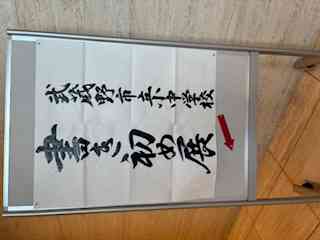 武蔵野市立小中学校
書き初め展